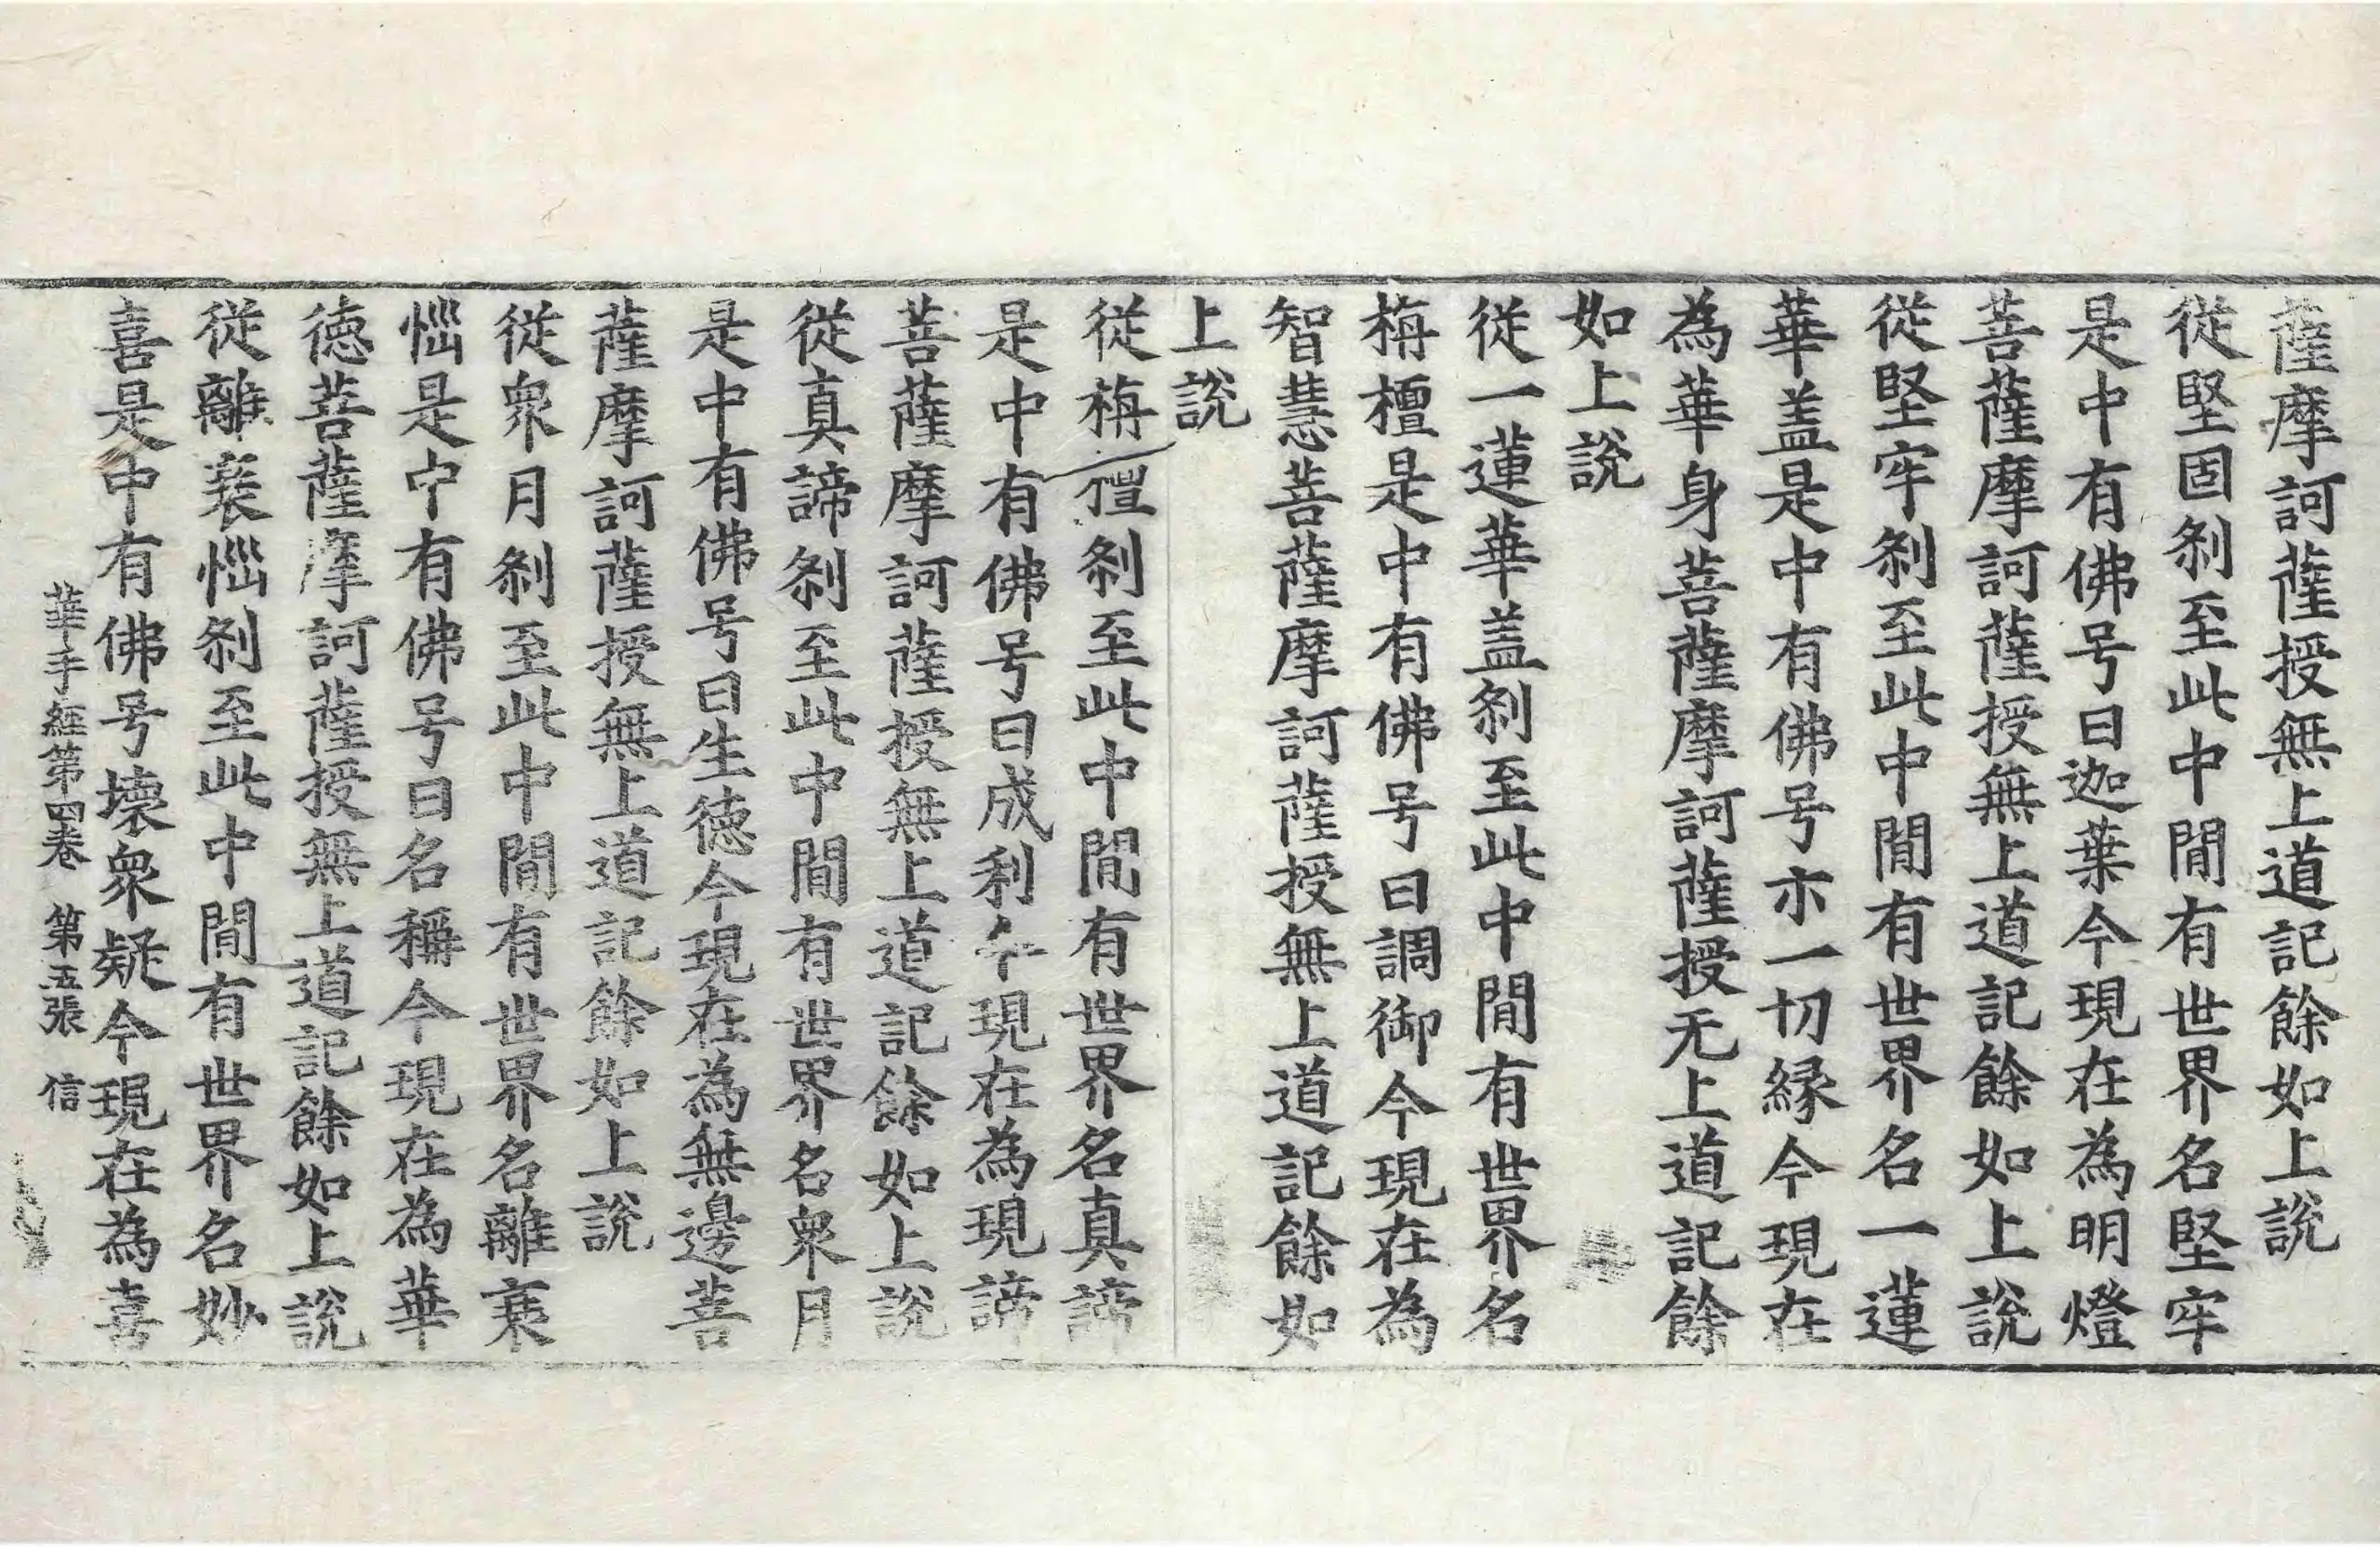 薩摩訶薩授無上道記餘如上說
從堅固剎至此中間有世界名堅牢
是中有佛号曰迦葉今現在為明燈
菩薩摩訶薩授無上道記餘如上說
從堅牢剎至此中間有世界名一蓮
華盖是中有佛号亦一切緣今現在
為華身菩薩摩訶薩授无上道記餘
如上說
從一蓮華盖剎至此中間有世界名
栴檀是中有佛号曰調御今現在為
智慧菩薩摩訶薩授無上道記餘如
上說
從栴檀剎至此中間有世界名真諦
是中有佛号曰成利今現在為現諦
菩薩摩訶薩授無上道記餘如上說
從真諦剎至此中間有世界名眾月
是中有佛号曰生德今現在為無邊菩
薩摩訶薩授無上道記餘如上說
從眾月剎至此中間有世界名離衰
惱是中有佛号曰名稱今現在為華
德菩薩摩訶薩授無上道記餘如上說
從離衰惱剎至此中間有世界名妙
喜是中有佛号壞眾疑今現在為喜
華手經第四卷 第五張 信